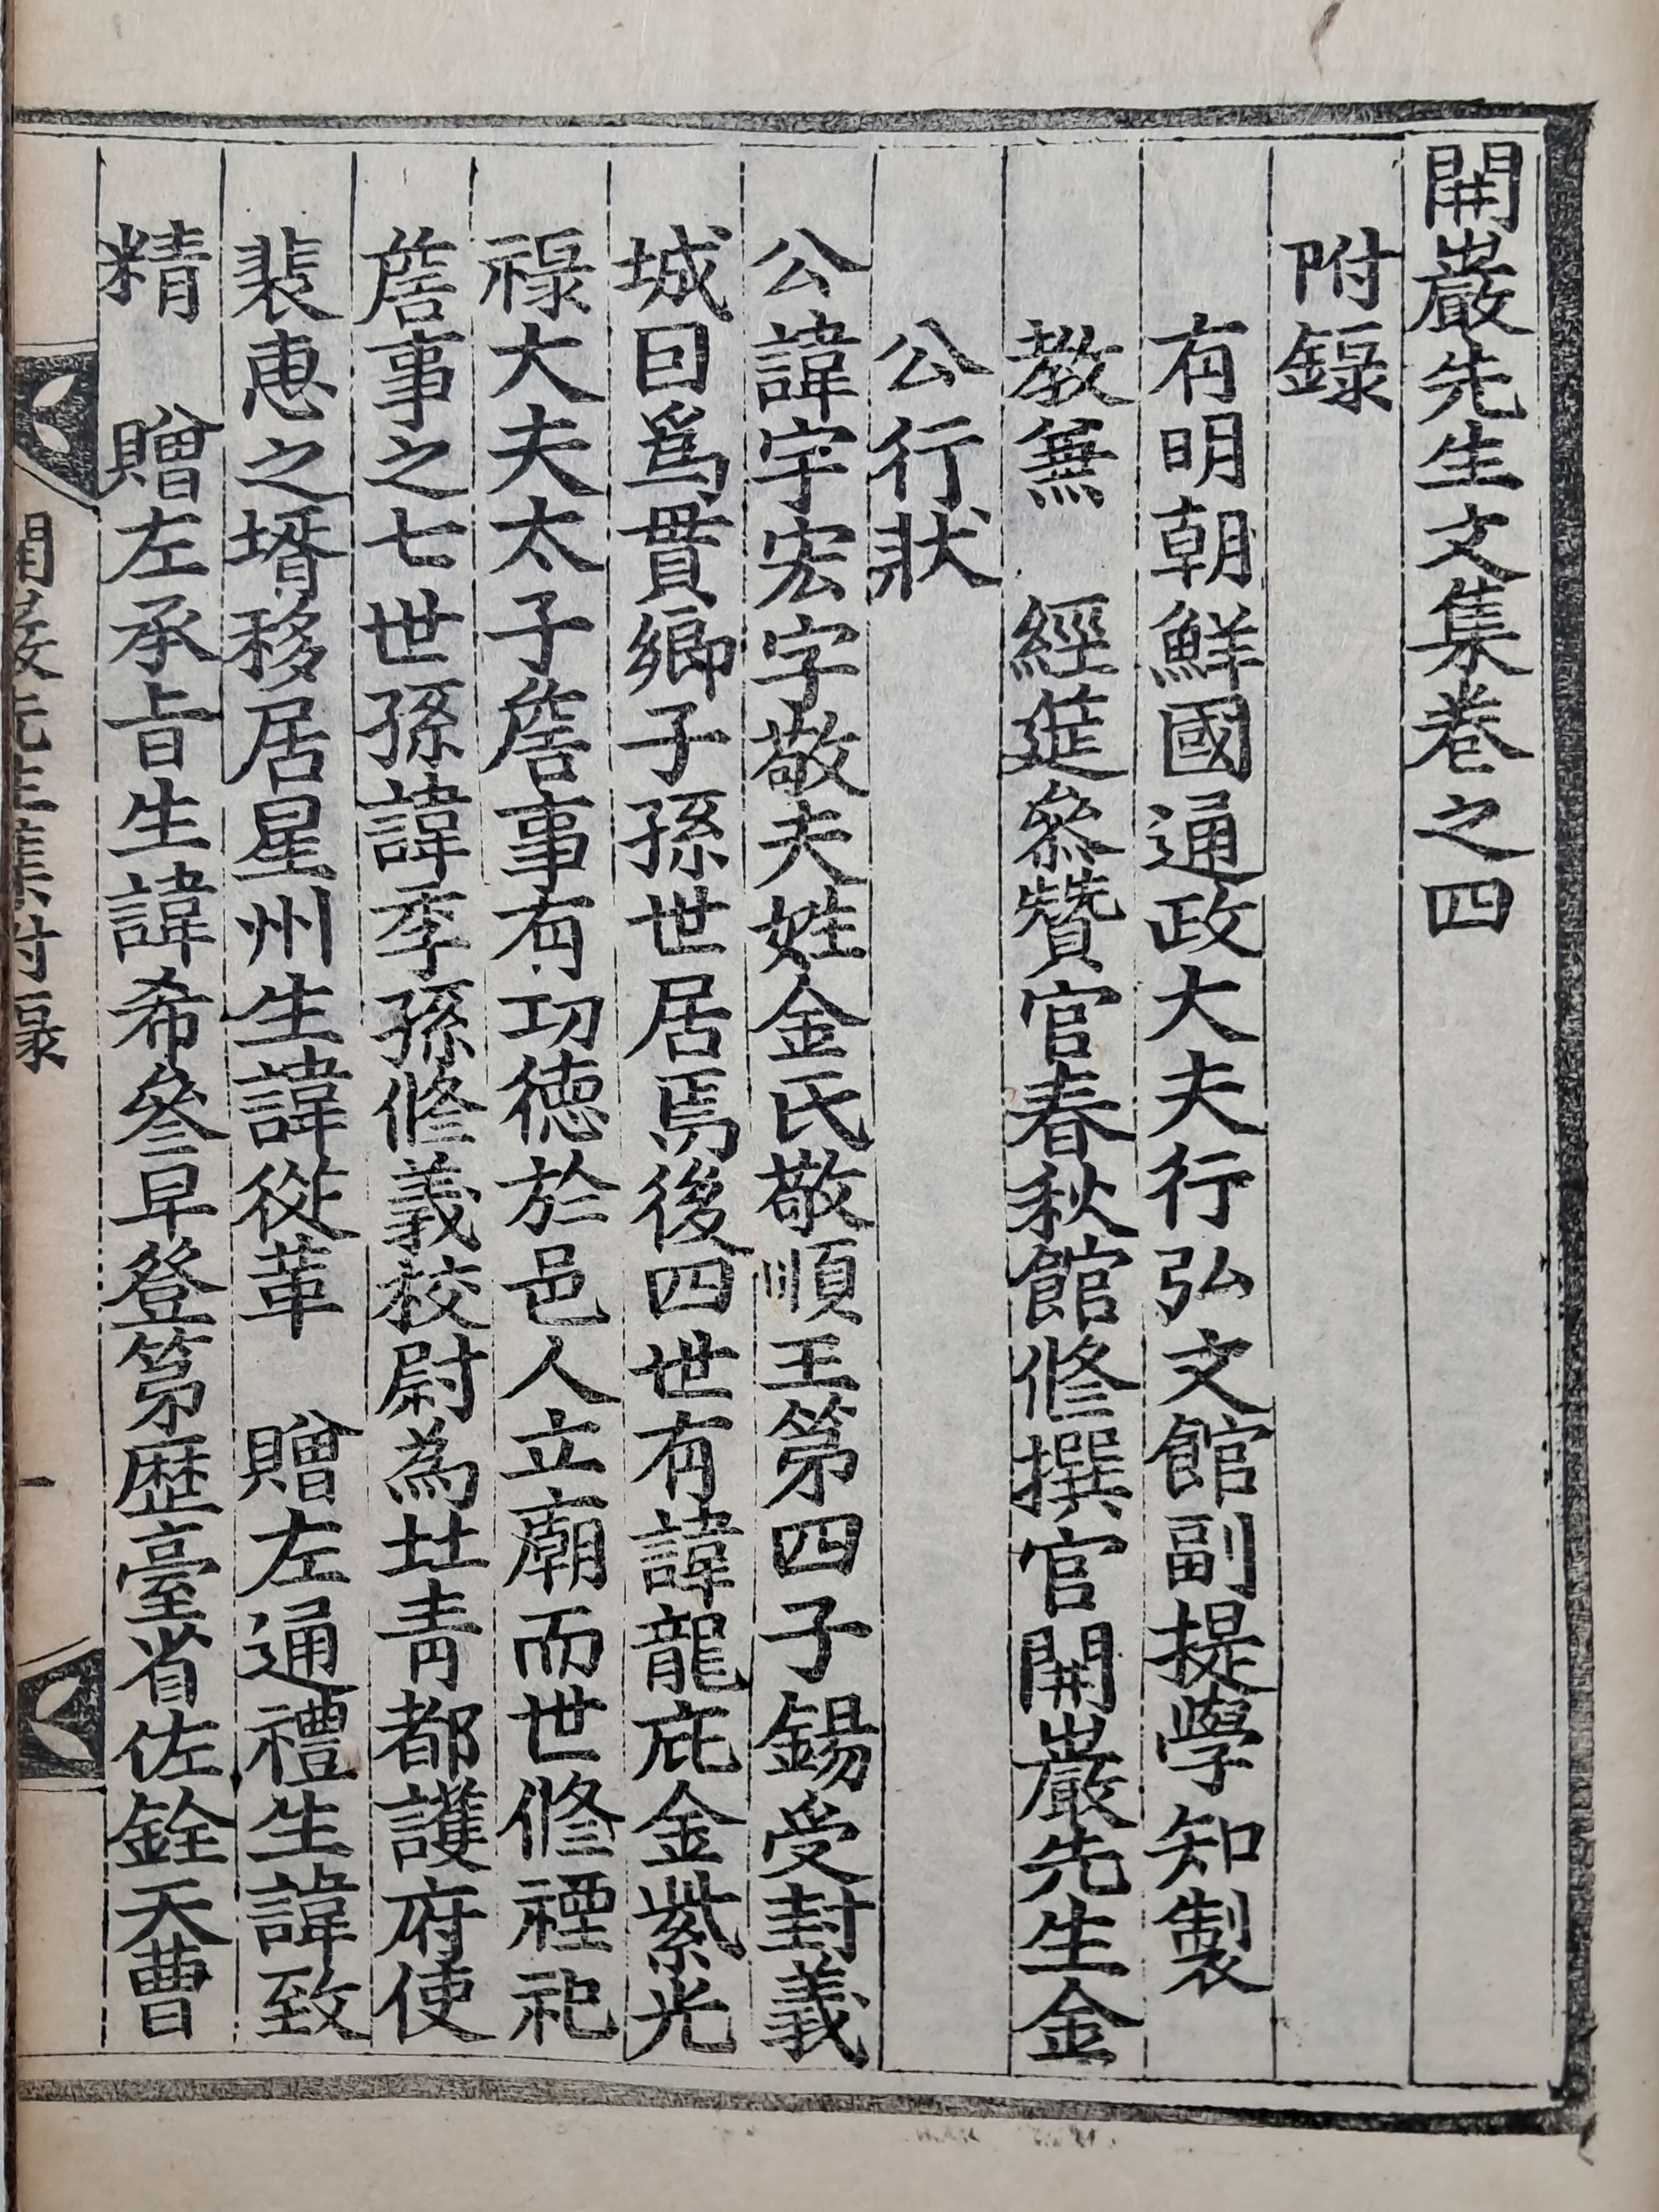 開巖先生文集卷之四
附錄
有明朝鮮國通政大夫行弘文館副提學知製
教無　經筵叅贊官春秋館修撰官開巖先生金
公行狀
公諱宇宏字敬夫姓金氏敬順王第四子錫受封義
城因爲貫鄉子孫世居焉後四世有諱龍庇金紫光
祿大夫太子詹事有功德於邑人立廟而世修禋祀
詹事之七世孫諱季孫修義校尉為北青都護府使
裴惠之壻移居星州生諱從革　贈左通禮生諱致
精　贈左承旨生諱希參早登第歷臺省佐銓天曹
開巖先生集附錄
一